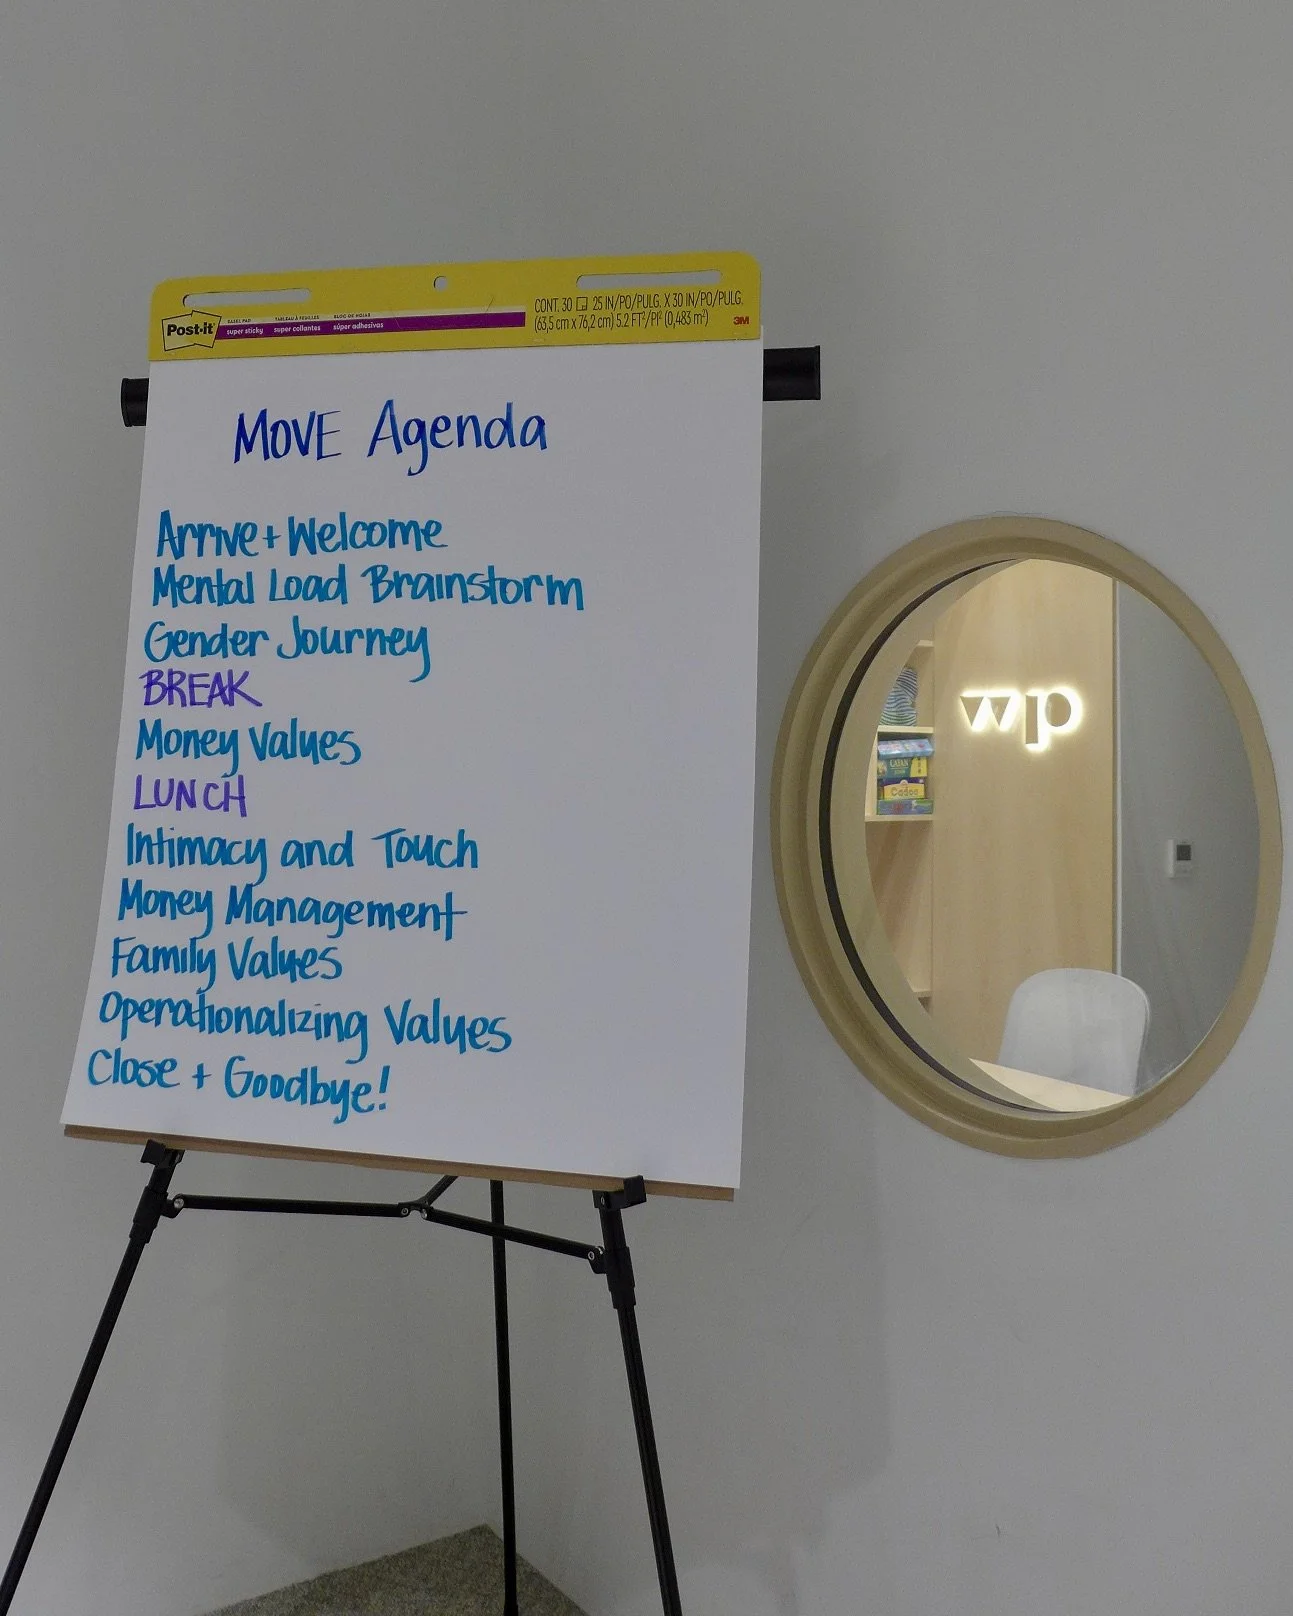 Post-it
EASEL PAD TABLEAU À FEUILLES BLOC DE HOJAS
super sticky super collantes súper adhesivas
CONT. 30 25 IN/PO/PULG. X 30 IN/PO/PULG.
(63,5 cm x 76,2 cm) 5.2 FT²/PI² (0,483 m²)
3M
MOVE Agenda
Arrive + Welcome
Mental Load Brainstorm
Gender Journey
BREAK
Money Values
LUNCH
Intimacy and Touch
Money Management
Family Values
Operationalizing Values
Close + Goodbye!
wp
CATAN